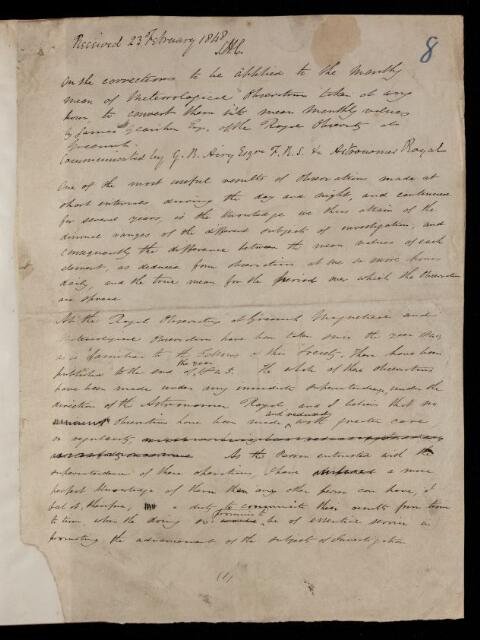 Received 23 February 1848
8
On the corrections to be applied to the Monthly
mean of Meteorological Observations taken at any
hour, to convert them into mean Monthly values
by James Glaisher Esq. of the Royal Observatory at
Greenwich.
Communicated by G. B. Airy Esqre F.R.S. &c Astronomer Royal
One of the most useful results of observations made at
short intervals during the day and night, and continued
for several years, is the knowledge we thus attain of the
diurnal ranges of the different subjects of investigation, and
consequently the difference between the mean values of each
element, as deduced from observations at one or more hours
daily, and the true mean for the period over which the observations
are spread
At the Royal Observatory at Greenwich Magnetical and
Meteorological Observations have been taken since the year
as is familiar to the Fellows of this Society. These have been
published to the end of the year
The whole of these observations
have been made under my immediate superintendence, under the
direction of the Astronomer Royal, and I believe that no
observations have been made and reduced with greater care,
or regularity
As the Person entrusted with the
superintendence of these operations, I have a more
perfect knowledge of them than any other person can have, I
feel it, therefore, a duty to communicate their results from time
to time, when the doing so promises to be of essential service in
promoting the advancement of the subjects of Investigation
(1)